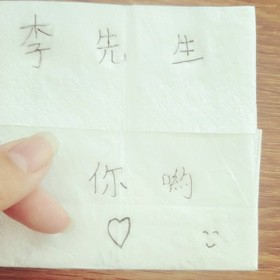 李先生
你哟